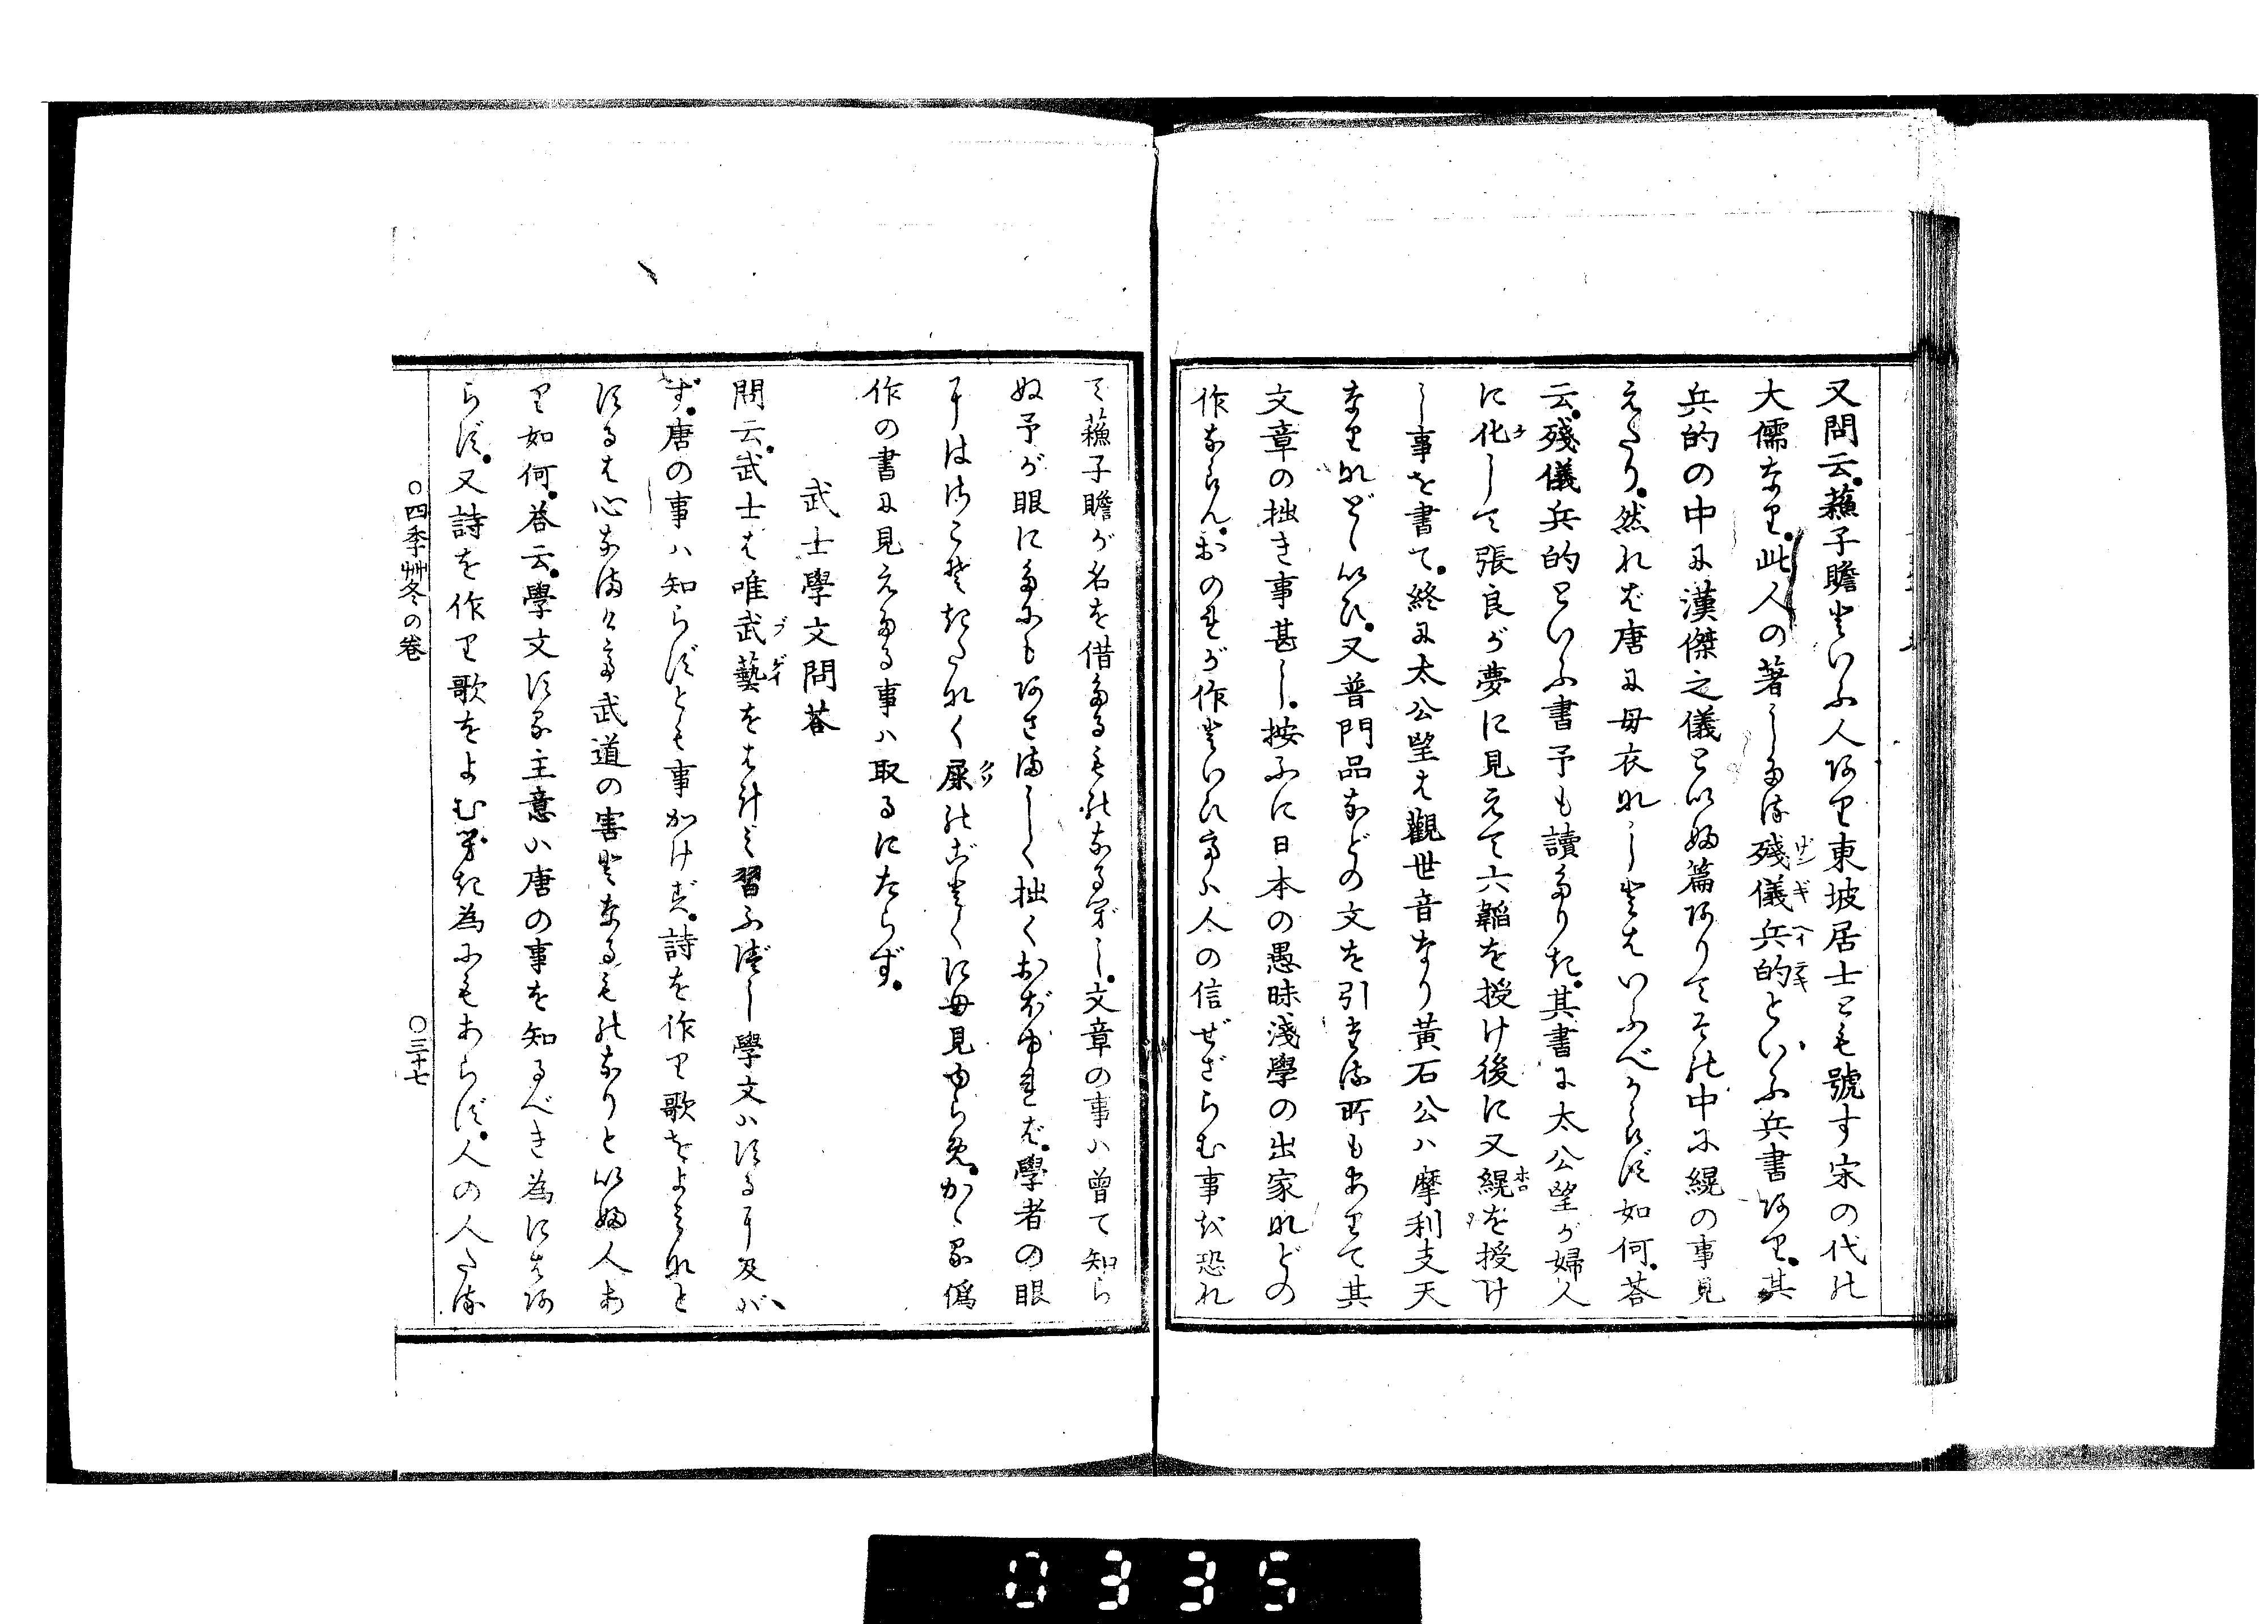 又問云。蘓子瞻といふ人あり東坡居士とも號す宋の代の
大儒なり。此人の著したる殘儀兵的といふ兵書あり。其
兵的の中に漢傑之儀といふ篇ありてその中に縨の事見
えたり。然れば唐に母衣なしとはいふべからず如何。荅
云。殘儀兵的といふ書予も讀たりき。其書に太公望が婦人
に化して張良が夢に見えて六韜を授け後に又縨を授け
し事を書て。終に太公望は觀世音なり黄石公ハ摩利支天
なりなどゝいひ。又普門品などの文を引たる所もありて其
文章の拙き事甚し。按ふに日本の愚昧淺學の出家などの
作ならん。おのれが作といひてハ人の信ぜざらむ事を恐れ
て蘓子瞻が名を借たるものなるべし。文章の事ハ曾て知ら
ぬ予が眼にだにもあさましく拙くおぼゆれば。學者の眼
よりはさこそきたなく屎のごとくに毋見ゆらめ。かゝる偽
作の書に見えたる事ハ取るにたらず。
武士學文問荅
問云。武士は唯武藝をば計を習ふべし學文ハするに及が
ず。唐の事ハ知らずとも事かけず。詩を作り歌をよみなと
するは心なまけて武道の害となるものなりといふ人あ
り如何。荅云。學文する主意ハ唐の事を知るべき為にはあ
らず。又詩を作り歌をよむべき為にもあらず。人の人たる
○四季艸冬の卷
○三十七
0335